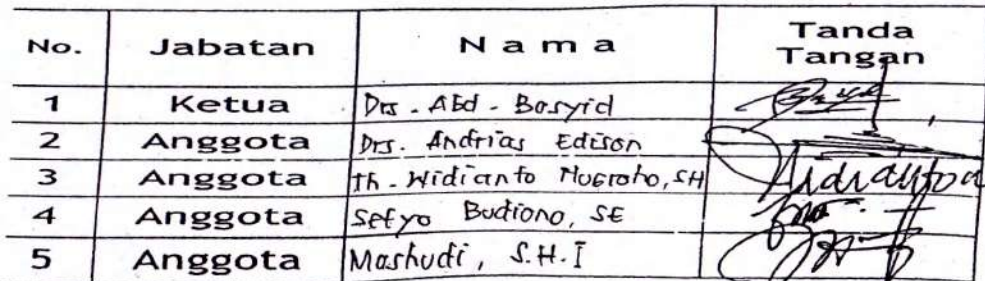 No. Jabatan N a m a Tanda Tangan
1 Ketua Drs. Abd. Basyid
2 Anggota Drs. Andrias Edison
3 Anggota Th. Widianto Nugroho, SH
4 Anggota Setyo Budiono, SE
5 Anggota Mashudi, S.H.I